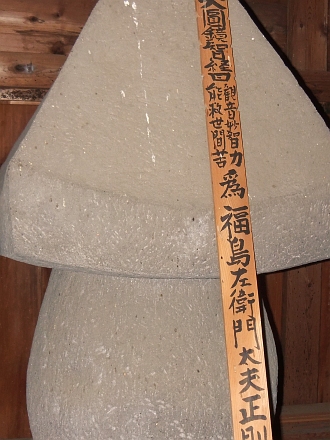 大圓鏡智
観音妙智力
能救世間苦
為
福島左衛門大夫正則